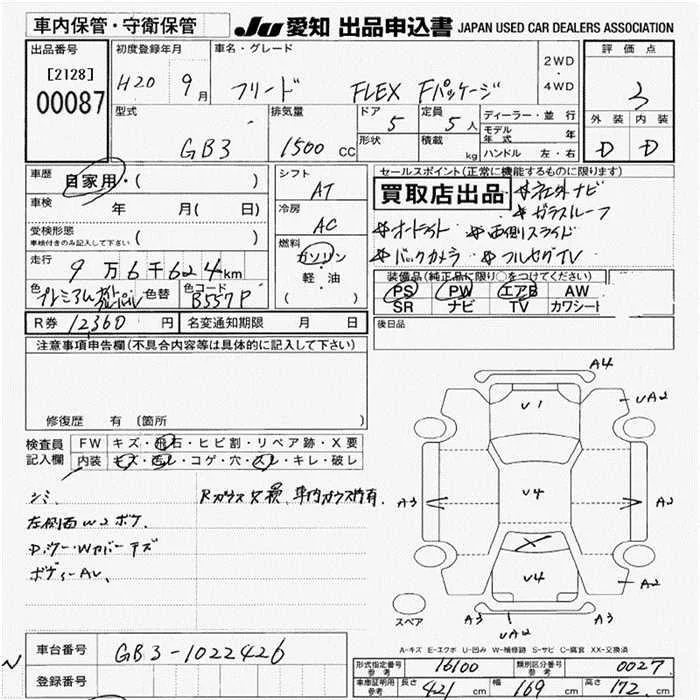 車内保管・守衛保管 JU 愛知 出品申込書 JAPAN USED CAR DEALERS ASSOCIATION
出品番号 初度登録年月 車名・グレード 評価点
[2128] H20 9月 フリード FLEX Fパッケージ 2WD・4WD 3
00087
型式 排気量 ドア 定員 ディーラー・並行 外装 内装
GB3 1500cc 5 5人 モデル年式 年 D D
形状 積載 kg ハンドル 左・右
車歴 自家用・( ) シフト セールスポイント(正常に機能するものに限ります)
AT 買取店出品 ☆社外ナビ
車検 年 月(日) 冷房 ☆ガラスルーフ
受検形態 AC ☆オートライト ☆両側スライド
車検付きのみ記入して下さい ( ) 燃料 ☆バックカメラ ☆フルセグTV
走行 ガソリン
9万6千624km 軽・油 装備品(純正品に限り○をつけてください)
色 色替 色コード ( ) PS PW エアB AW
プレミアム B557P SR ナビ TV カワシート
R券 12360円 名変通知期限 月 日 後日品
注意事項申告欄(不具合内容等は具体的に記入して下さい)
修復歴 有 〔箇所 〕
検査員記入欄 FW キズ・飛石・ヒビ割・リペア跡・X要
内装 キズ・汚レ・コゲ・穴・スレ・キレ・破レ
シミ、 Rガラス欠損、車内ガラス片有、
左側面W2ボケ、
D、ワーWカバーキズ
ボディーAU、
A4
U1 UA2
A3 U4 A2
X
U4 A2
スペア A3 UA2 A3
A-キズ E-エクボ U-凹み W-補修跡 S-サビ C-腐蝕 XX-交換済
車台番号 GB3-1022426 形式指定番号 参考 16100 類別区分番号 参考 0027
登録番号 車庫証明用 参考 長さ 421cm 幅 169cm 高さ 172cm